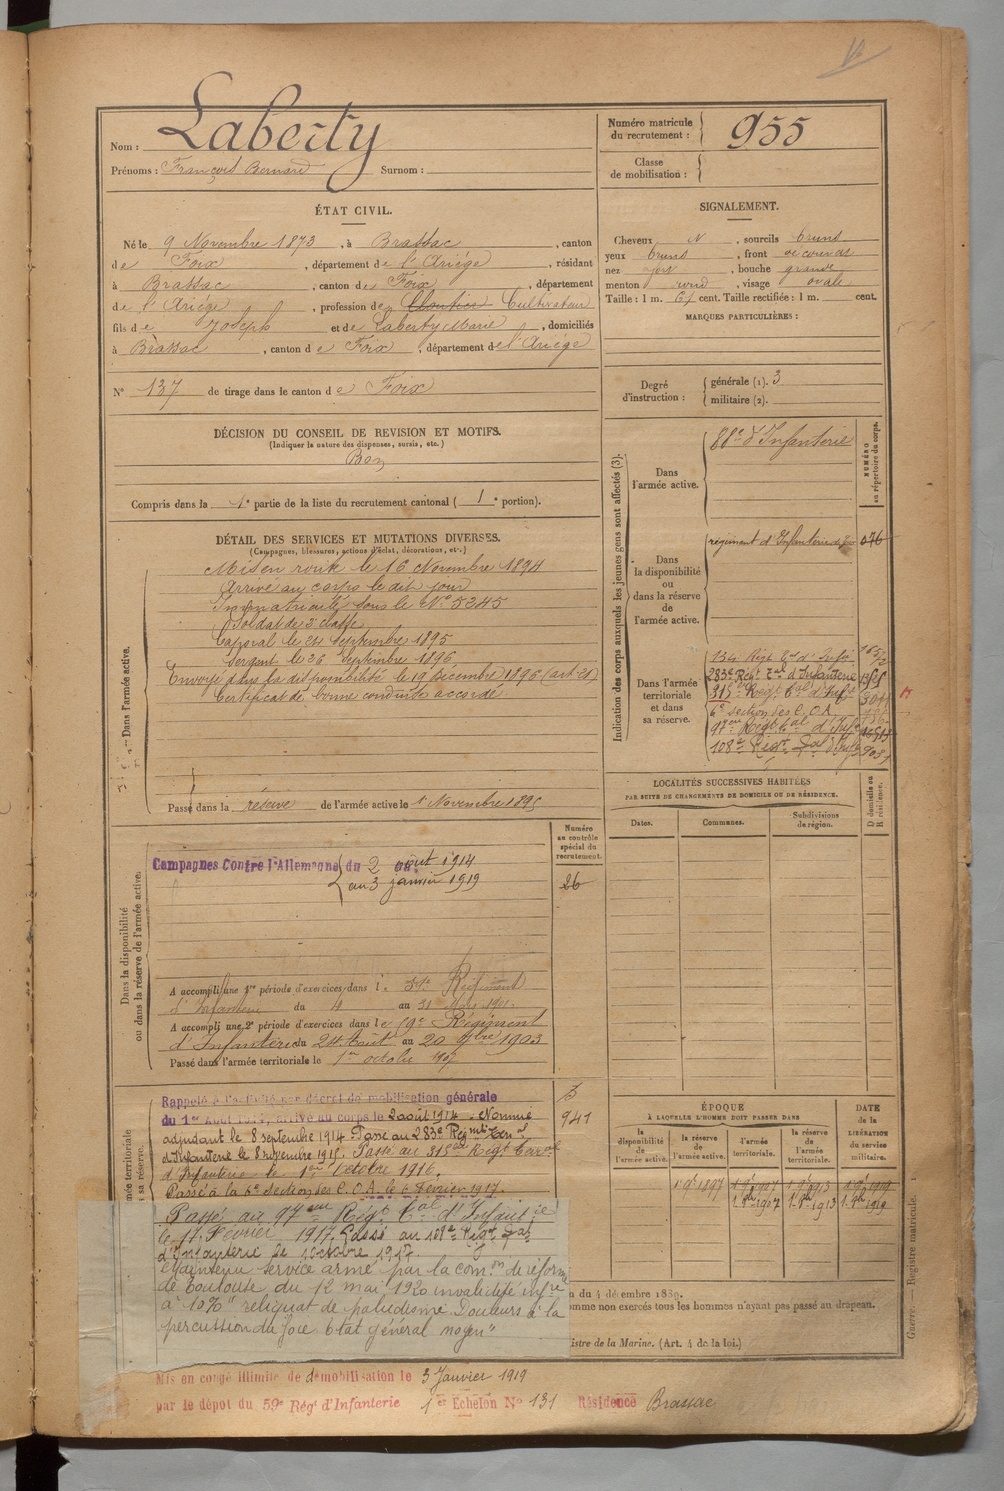 Nom : Laberty
Prénoms : François Bernard Surnom :
Numéro matricule
du recrutement : 955
Classe
de mobilisation :
ÉTAT CIVIL.
Né le 9 Novembre 1873, à Brassac, canton
de Foix, département de l'Ariège, résidant
à Brassac, canton de Foix, département
de l'Ariège, profession de Cultivateur
fils de Joseph et de Laberty Marie, domiciliés
à Brassac, canton de Foix, département de l'Ariège
N° 137 de tirage dans le canton de Foix
SIGNALEMENT.
Cheveux N, sourcils bruns
yeux bruns, front découvert
nez, bouche grande
menton rond, visage ovale
Taille : 1 m. cent. Taille rectifiée : 1 m. cent.
MARQUES PARTICULIÈRES :
Degré
d'instruction :
générale (1). 3
militaire (2).
DÉCISION DU CONSEIL DE REVISION ET MOTIFS.
(Indiquer la nature des dispenses, sursis, etc.)
Bon
Compris dans la 1e partie de la liste du recrutement cantonal ( 1e portion).
DÉTAIL DES SERVICES ET MUTATIONS DIVERSES.
(Campagnes, blessures, actions d'éclat, décorations, etc.)
Dans l'armée active.
Mis en route le 16 Novembre 1894
Arrivé au corps le dit jour
Immatriculé sous le N° 5245
Soldat de 2e classe
Caporal le 24 Septembre 1895
Sergent le 26 Septembre 1896
Envoyé dans la disponibilité le 19 Décembre 1896 (art 21)
Certificat de bonne conduite accordé
Passé dans la réserve de l'armée active le 1 Novembre 189
Indication des corps auxquels les jeunes gens sont affectés (3).
NUMÉRO
au répertoire du corps.
Dans
l'armée active.
88e d'Infanterie
Dans
la disponibilité
ou
dans la réserve
de
l'armée active.
régiment d'Infanterie de Foix 076
Dans l'armée
territoriale
et dans
sa réserve.
134 Régt tal d'Infie
283e Régt tal d'Infanterie
315e Régt tal d'Infie
6e Section des C.O.A.
97eme Régt tal d'Infie
108e Régt tal d'Infie
LOCALITÉS SUCCESSIVES HABITÉES
PAR SUITE DE CHANGEMENTS DE DOMICILE OU DE RÉSIDENCE.
Dates.
Communes.
Subdivisions
de région.
D domicile ou
R résidence.
Dans la disponibilité
ou dans la réserve de l'armée active.
Numéro
au contrôle
spécial du
recrutement.
26
Campagnes Contre l'Allemagne du 2 août 1914
au 3 janvier 1919
A accompli une 1re période d'exercices dans le Régiment
d'Infanterie du 4 au 31 Mars 1901.
A accompli une 2e période d'exercices dans le Régiment
d'Infanterie du 24 Août au 20 7bre 1903
Passé dans l'armée territoriale le 1er octobre 1907
Rappelé à l'activité par décret de mobilisation générale
du 1er Août 1914, arrivé au corps le 2 août 1914. Nommé
adjudant le 8 septembre 1914 Passé au 283e Régiment Terral
d'Infanterie le 8 novembre 1915. Passé au 315eme Régt Terral
d'Infanterie le 1er Octobre 1916.
Passé à la 6e section des C.O.A. le 6 Février 1917.
3
941
Passé au 97eme Régt tal d'Infantie
le 17 Février 1917. Passé au 108e Régt tal
d'Infanterie le 1 octobre 1917.
Maintenu service armé par la comon de réforme
de Toulouse du 12 mai 1920 invalidité infre
à 10% "reliquat de paludisme Douleurs à la
percussion du foie Etat général moyen"
ÉPOQUE
À LAQUELLE L'HOMME DOIT PASSER DANS
la
disponibilité
de
l'armée active.
la réserve
de
l'armée active.
l'armée
territoriale.
la réserve
de
l'armée
territoriale.
DATE
de la
LIBÉRATION
du service
militaire.
du 4 décembre 1889.
comme non exercés tous les hommes n'ayant pas passé au drapeau.
Ministre de la Marine. (Art. 4 de la loi.)
Guerre. — Registre matricule.
Mis en congé illimité de démobilisation le 3 Janvier 1919
par le dépot du 59e Régt d'Infanterie 1er Echelon No 131 Résidence Brassac